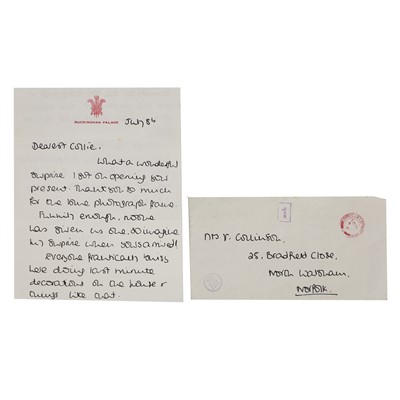 BUCKINGHAM PALACE
July 86
Dearest Collie,
What a wonderful
surprise I got on opening your
present. Thank you so much
for the lovely photograph frame
Funnily enough, no one
has given us one, so imagine
my surprise when yours arrived!
Everyone frantically busy
here doing last minute
decorations on the house &
things like that.
Mrs V. Collinson,
25, Bradfield Close,
North Walsham,
NORFOLK.